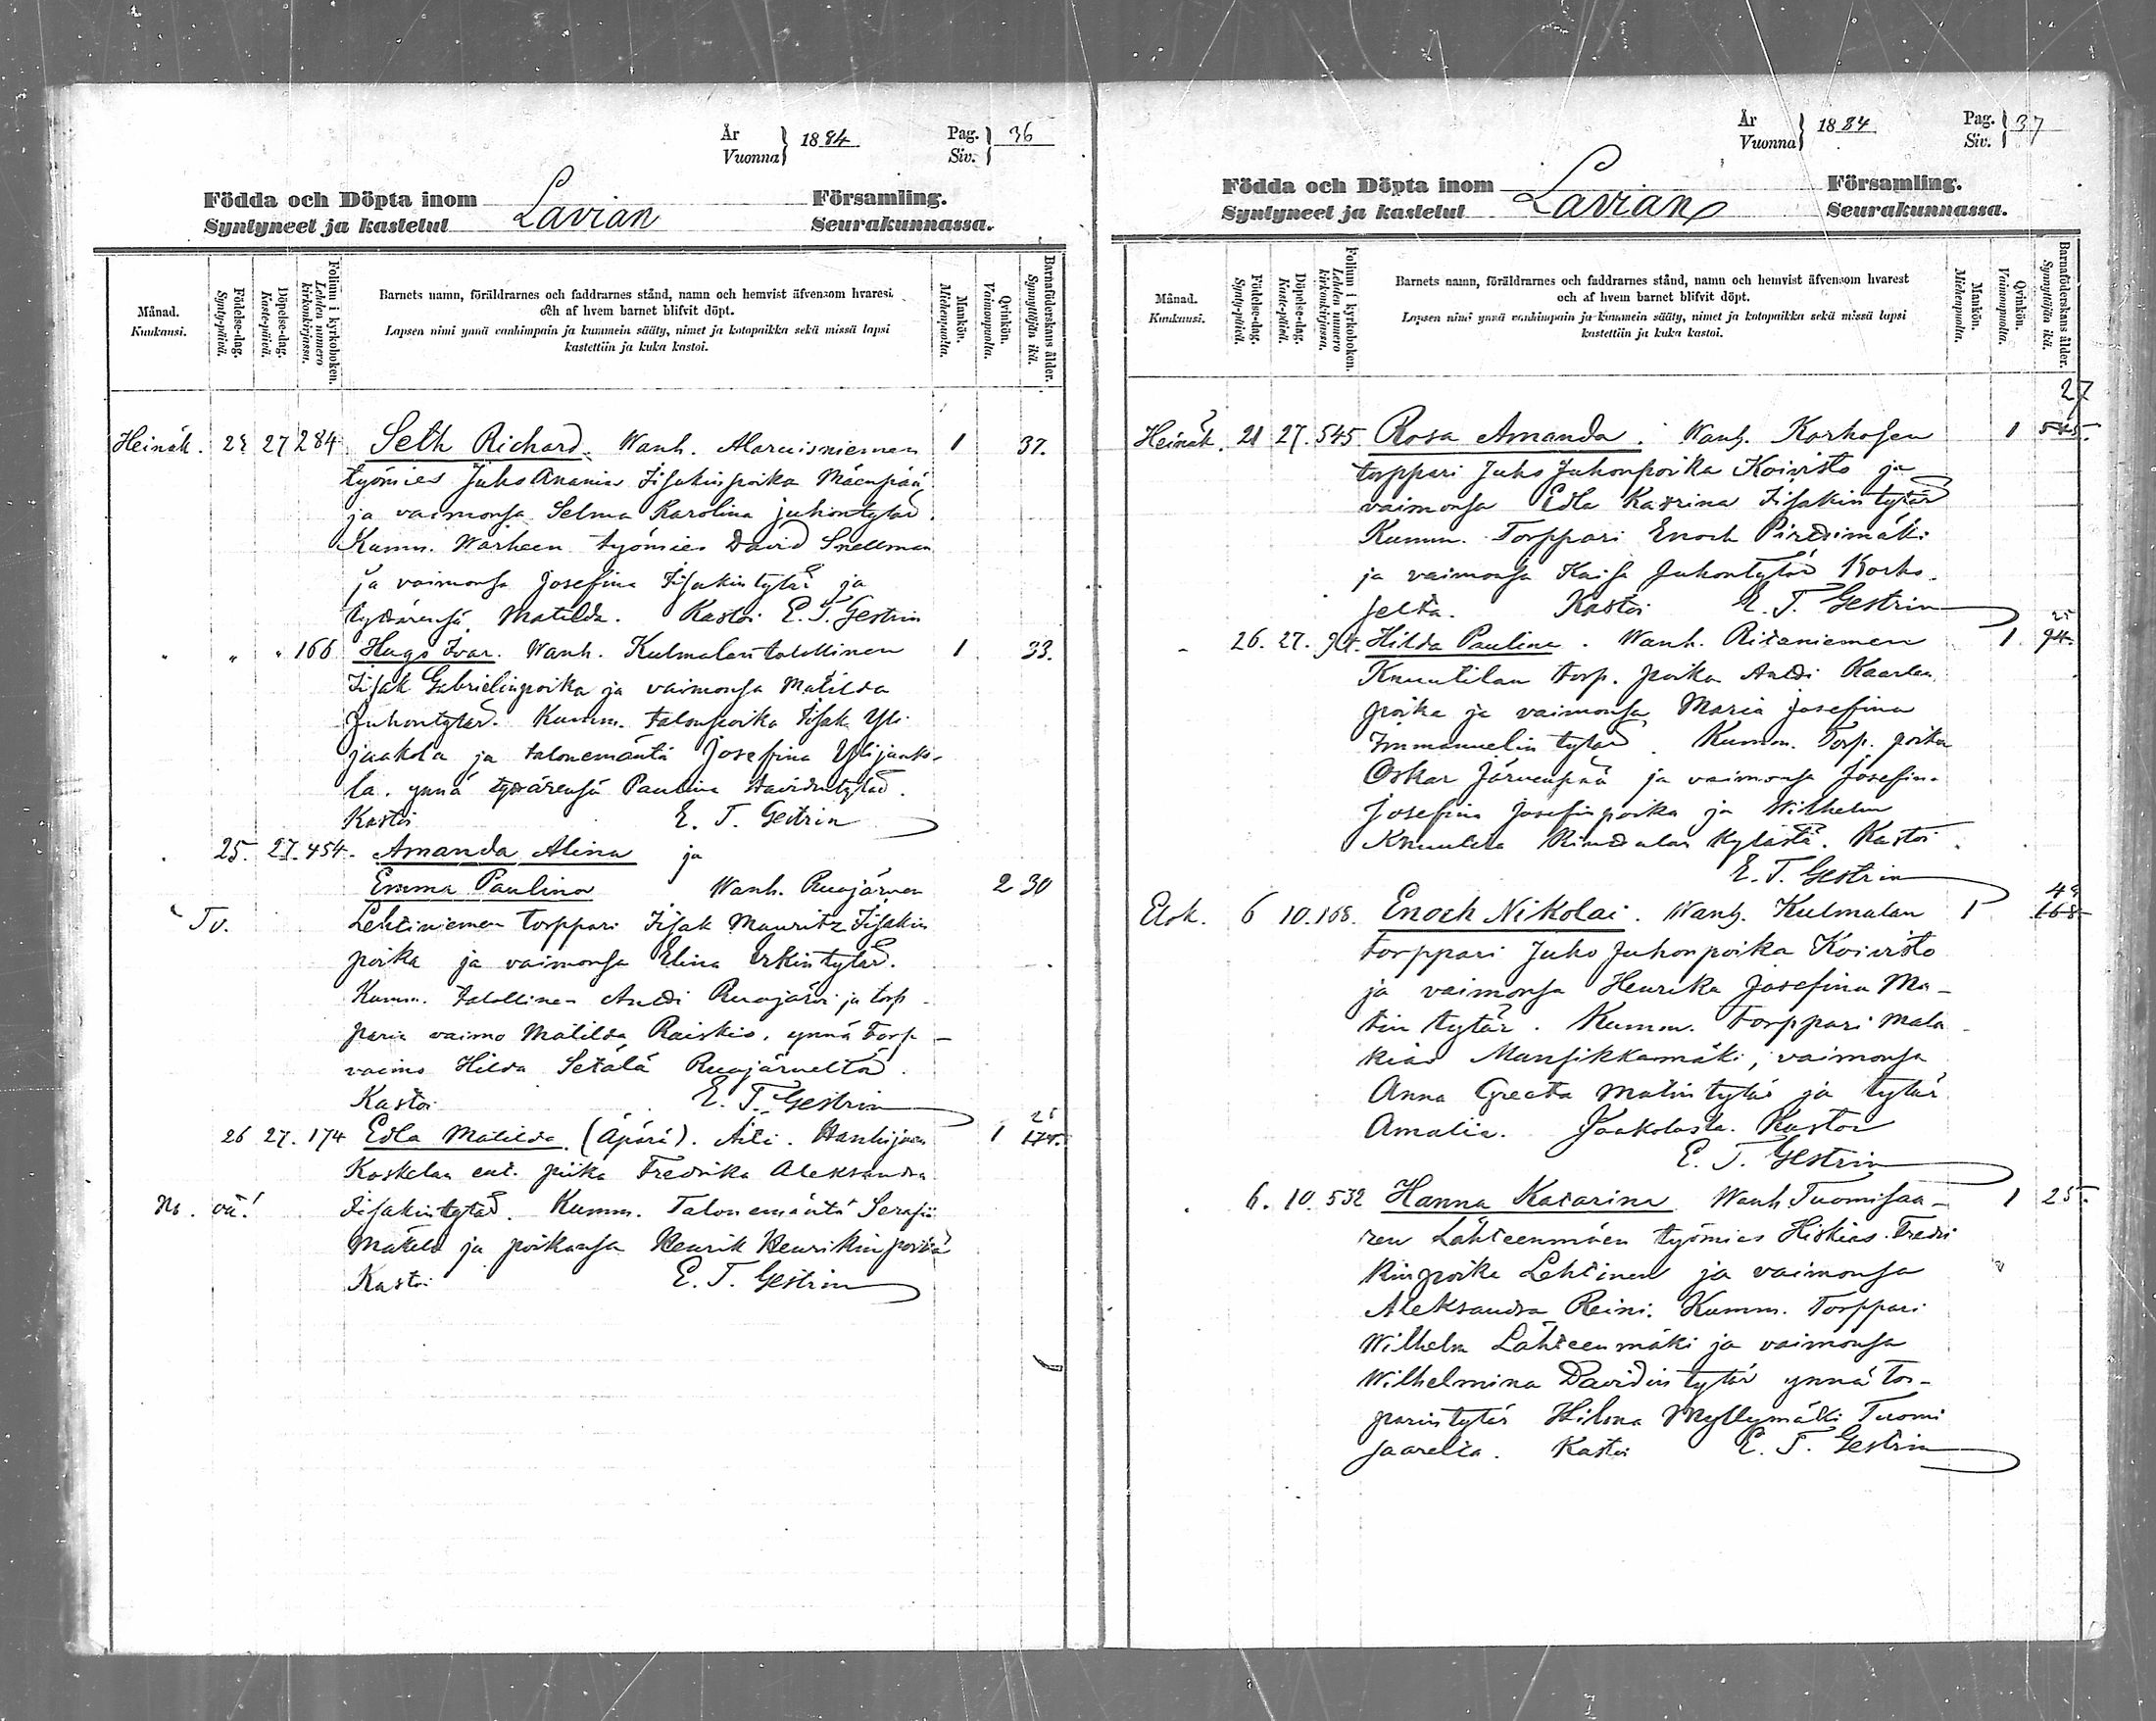 År
Vuonna } 1884
Pag.
Siv. } 36
Födda och Döpta inom
Syntyneet ja kastetut
Lavian
Församling.
Seurakunnassa.
Månad.
Kuukausi.
Födelse-dag.
Synty-päivä.
Döpelse-dag.
Kaste-päivä.
Folium i kyrkoboken.
Lehden numero kirkonkirjassa.
Barnets namn, föräldrarnes och faddrarnes stånd, namn och hemvist äfvensom hvarest
och af hvem barnet blifvit döpt.
Lapsen nimi ynnä vanhimpain ja kummein sääty, nimet ja kotopaikka sekä missä lapsi
kastettiin ja kuka kastoi.
Mankön.
Miehenpuolta.
Qvinkön.
Vaimonpuolta.
Barnaföderskans ålder.
Synnyttäjän ikä.
Heinäk. 27 284 Seth Richard. Wanh. 1 37.
työmies Juho Ananias Iisakinpoika Mäenpää
ja vaimonsa Selma Karolina Juhontytär.
Kumm. työmies David Snellman
ja vaimonsa Josefina Iisakintytär ja
tyttärensä Matilda. Kastoi E. T. Gestrin
" " " 166 Hugo Ivar. Wanh. Kulmalan talollinen 1 33.
Iisak Gabrielinpoika ja vaimonsa Matilda
Juhontytär. Kumm. talonpoika Iisak Yli-
jaakola ja talonemäntä Josefina Ylijaako-
la. ynnä tyttärensä Paulina Davidintytär.
Kastoi E. T. Gestrin
25. 27. 454. Amanda Alina ja
Emma Paulina Wanh. Ruojärven 2 30
Tv. Lehtiniemen torppari Iisak Mauritz Iisakin
poika ja vaimonsa Elina Erkintytär.
Kumm. talollinen Antti Ruojärvi ja torp-
parin vaimo Matilda Raiskio, ynnä Torp-
vaimo Hilda Setälä Ruojärveltä.
Kastoi E. T. Gestrin
26 27. 174 Edla Matilda (Äpärä). Äiti. 1 174.
Koskelan ent. piika Fredrika Aleksandra
Iisakintytär. Kumm. Talonemäntä
Mäkelä ja poikansa Henrik Henrikinpoika
Kastoi E. T. Gestrin
År
Vuonna } 1884
Pag.
Siv. } 37
Födda och Döpta inom
Syntyneet ja kastetut
Lavian
Församling.
Seurakunnassa.
Månad.
Kuukausi.
Födelse-dag.
Synty-päivä.
Döpelse-dag.
Kaste-päivä.
Folium i kyrkoboken.
Lehden numero kirkonkirjassa.
Barnets namn, föräldrarnes och faddrarnes stånd, namn och hemvist äfvensom hvarest
och af hvem barnet blifvit döpt.
Lapsen nimi ynnä vanhimpain ja kummein sääty, nimet ja kotopaikka sekä missä lapsi
kastettiin ja kuka kastoi.
Mankön.
Miehenpuolta.
Qvinkön.
Vaimonpuolta.
Barnaföderskans ålder.
Synnyttäjän ikä.
27
Heinäk. 21 27. 545 Rosa Amanda. Wanh. Korhosen 1 545.
torppari Juho Juhonpoika Koivisto ja
vaimonsa Edla Katrina Iisakintytär
Kumm. Torppari Enoch
ja vaimonsa Kaisa Juhontytär Korho-
selta. Kastoi E. T. Gestrin
25
26. 27. 94. Hilda Paulina. Wanh. Ritaniemen 1. 94.
Knuutilan torp. poika Antti Kaarlen
poika ja vaimonsa Maria Josefina
Immanuelin tytär. Kumm. Torp. poika
Oskar Järvenpää ja vaimonsa Josefina
Josefina Josefinpoika ja Wilhelm
Knuutila kylästä. Kastoi
E. T. Gestrin
Elok. 6 10. 168. Enoch Nikolai. Wanh. Kulmalan 1 168
torppari Juho Juhonpoika Koivisto
ja vaimonsa Henrika Josefina Ma-
tin tytär. Kumm. torppari Mala-
kias Mansikkamäki, vaimonsa
Anna Greeta Matintytär ja tytär
Amalia. Jaakolasta. Kastoi
E. T. Gestrin
6. 10. 532 Hanna Katarina Wanh. Tuomisaa- 1 25.
ren Lähteenmäen työmies Hiskias Fredri
kinpoika Lehtinen ja vaimonsa
Aleksandra Reini. Kumm. Torppari
Wilhelm Lähteenmäki ja vaimonsa
Wilhelmina Davidin tytär ynnä tor-
parintytär Hilma Myllymäki Tuomi
saarelta. Kastoi E. T. Gestrin